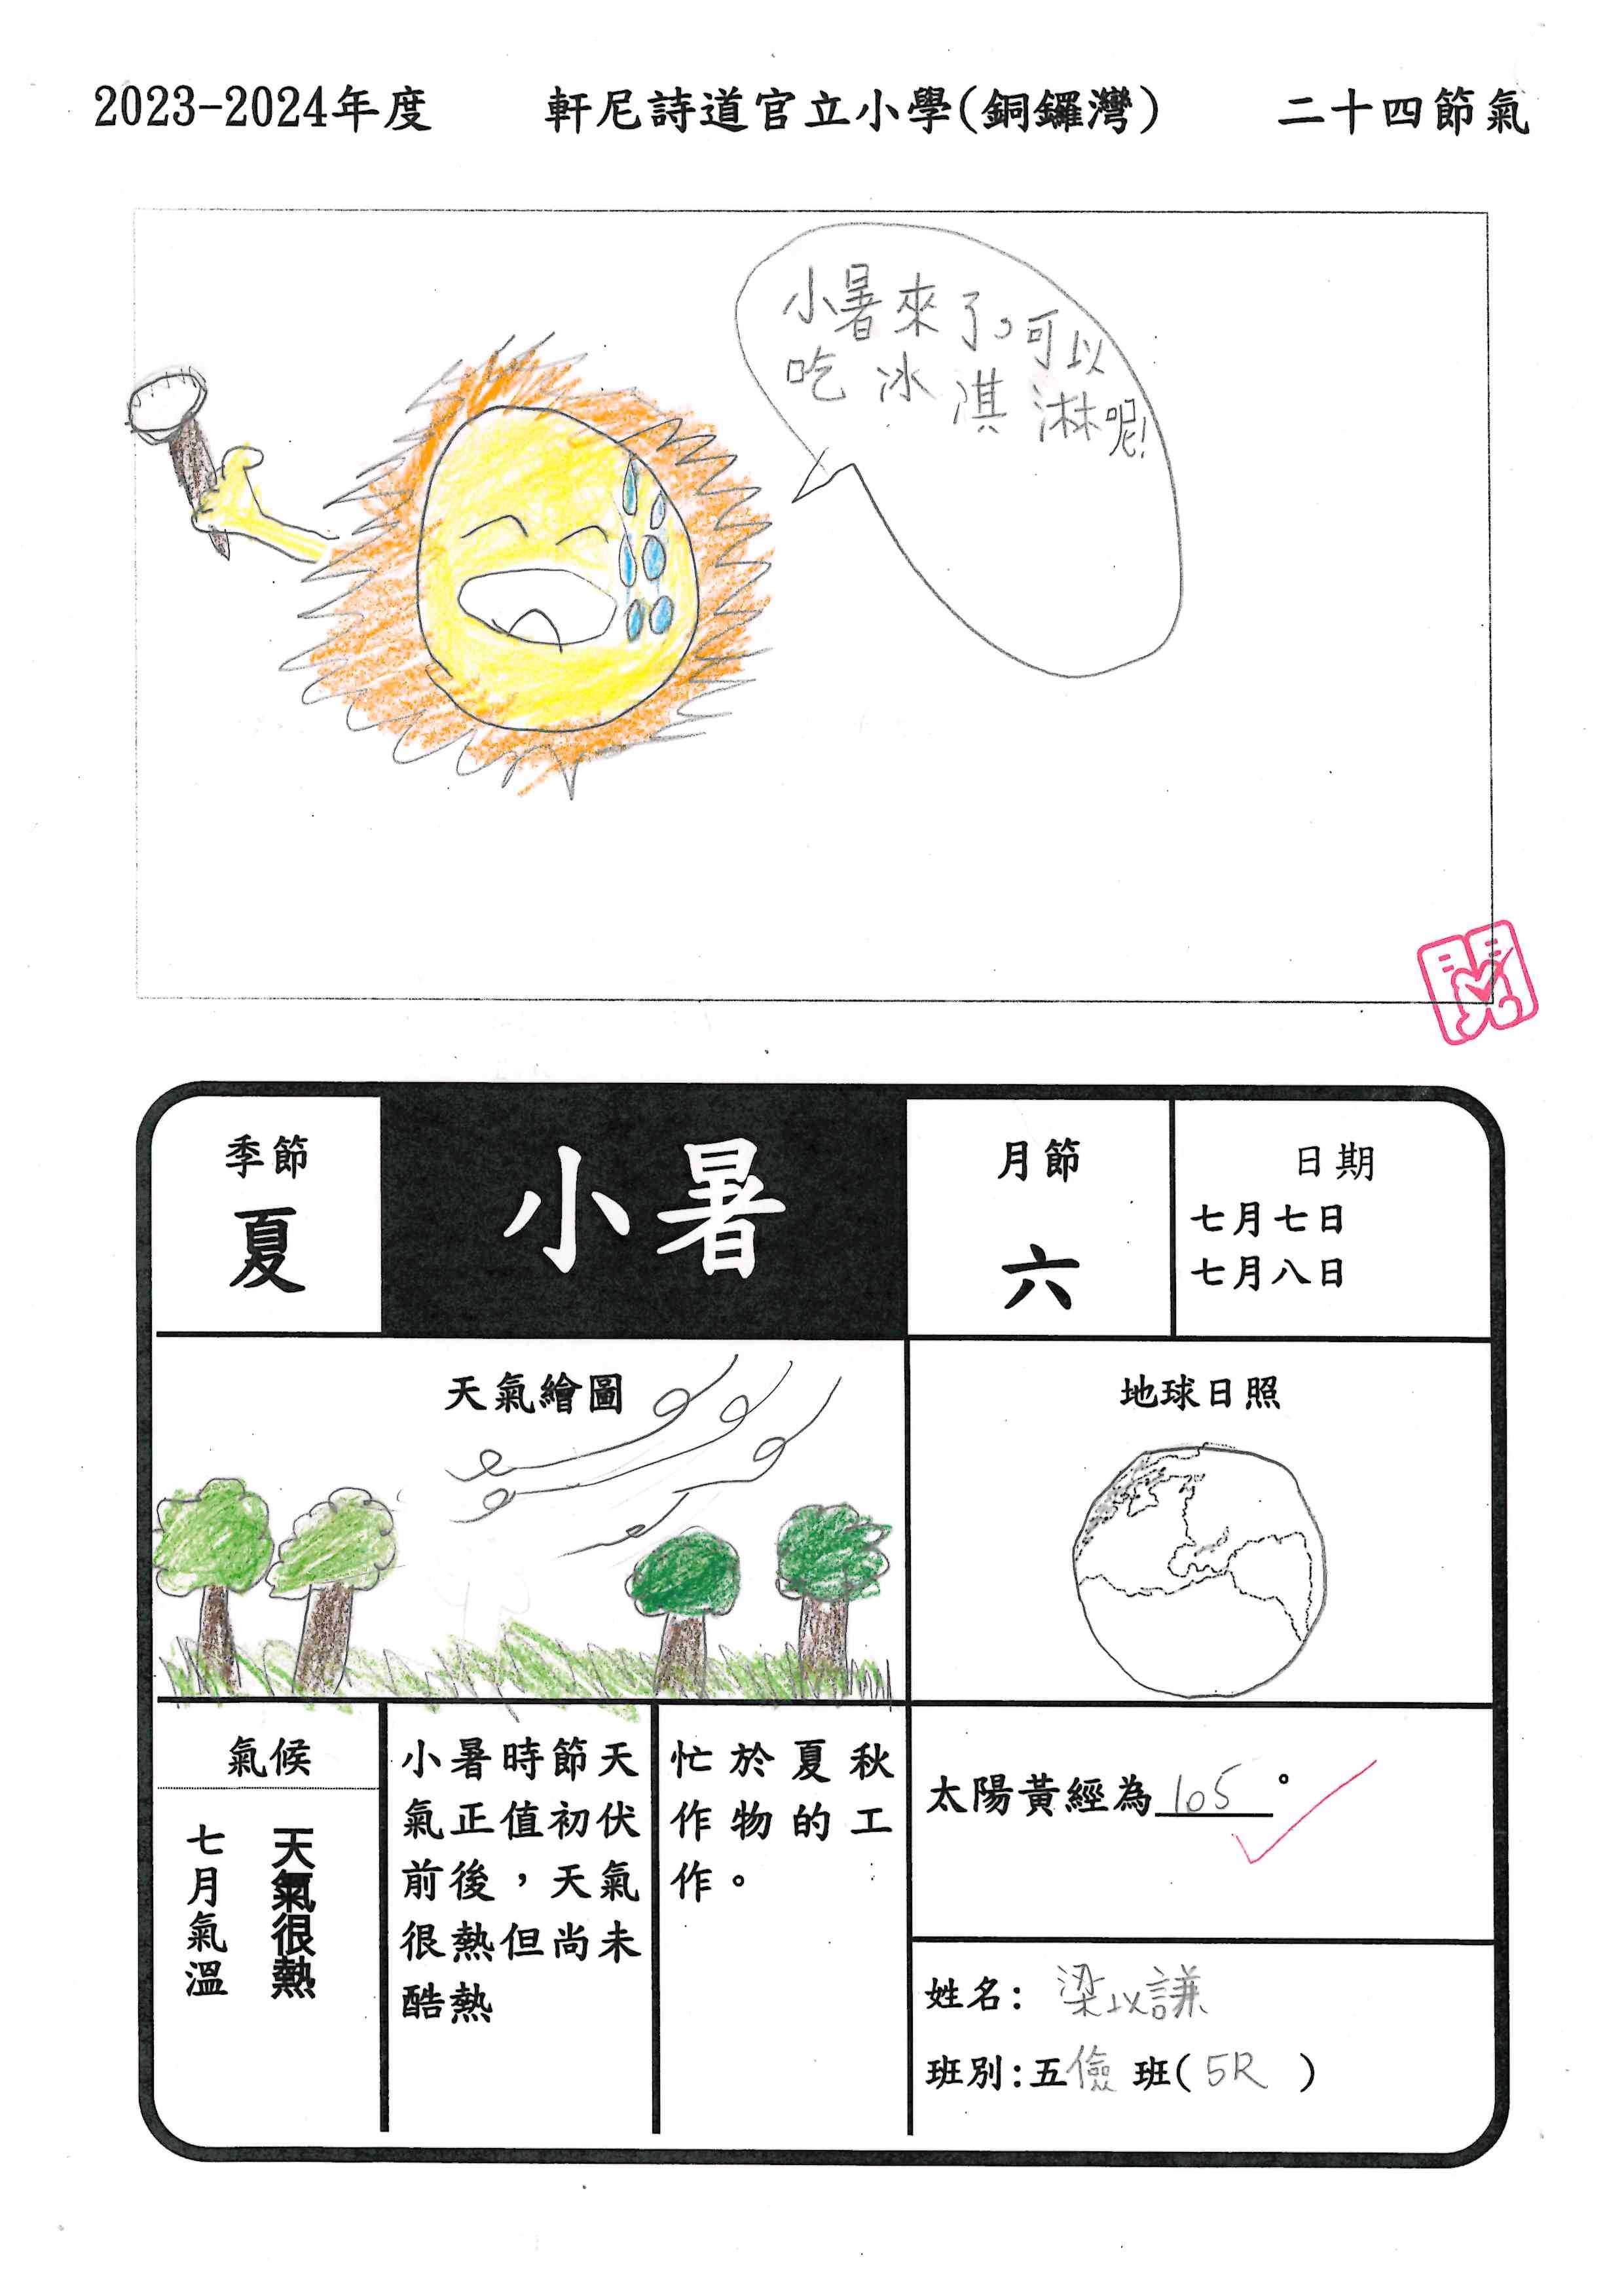 2023-2024年度 軒尼詩道官立小學(銅鑼灣) 二十四節氣
小暑來了,可以
吃冰淇淋呢!
閱
季節
夏
小暑
月節
六
日期
七月七日
七月八日
天氣繪圖
地球日照
氣候
七月氣溫
天氣很熱
小暑時節天
氣正值初伏
前後，天氣
很熱但尚未
酷熱
忙於夏秋
作物的工
作。
太陽黃經為105°
姓名: 梁以謙
班別:五儉班(5R )